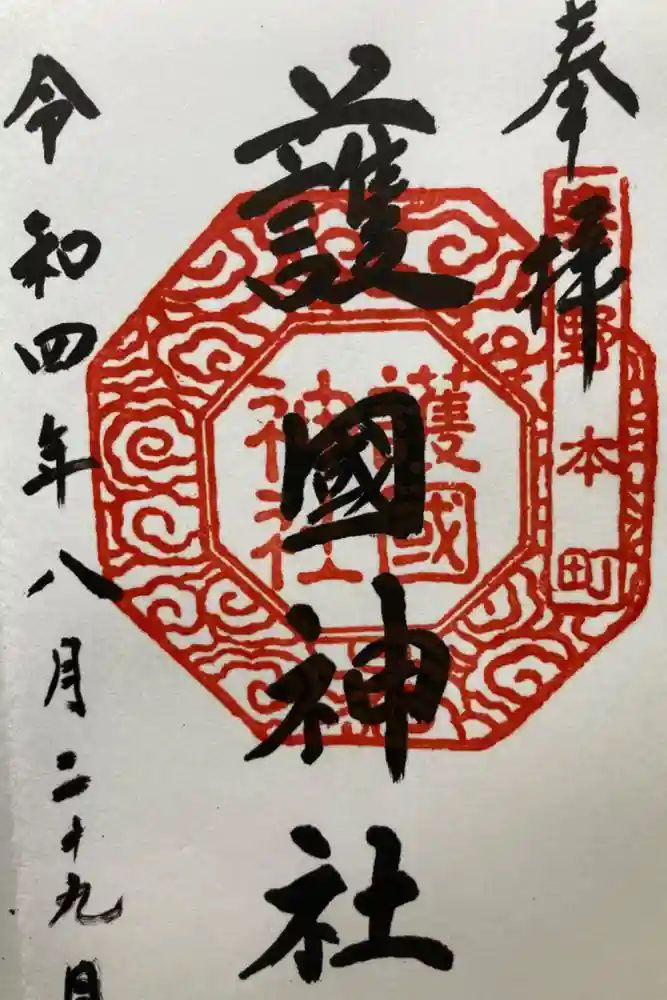 奉拝
野本町
護國神社
護國
神社
令和四年八月二十九日